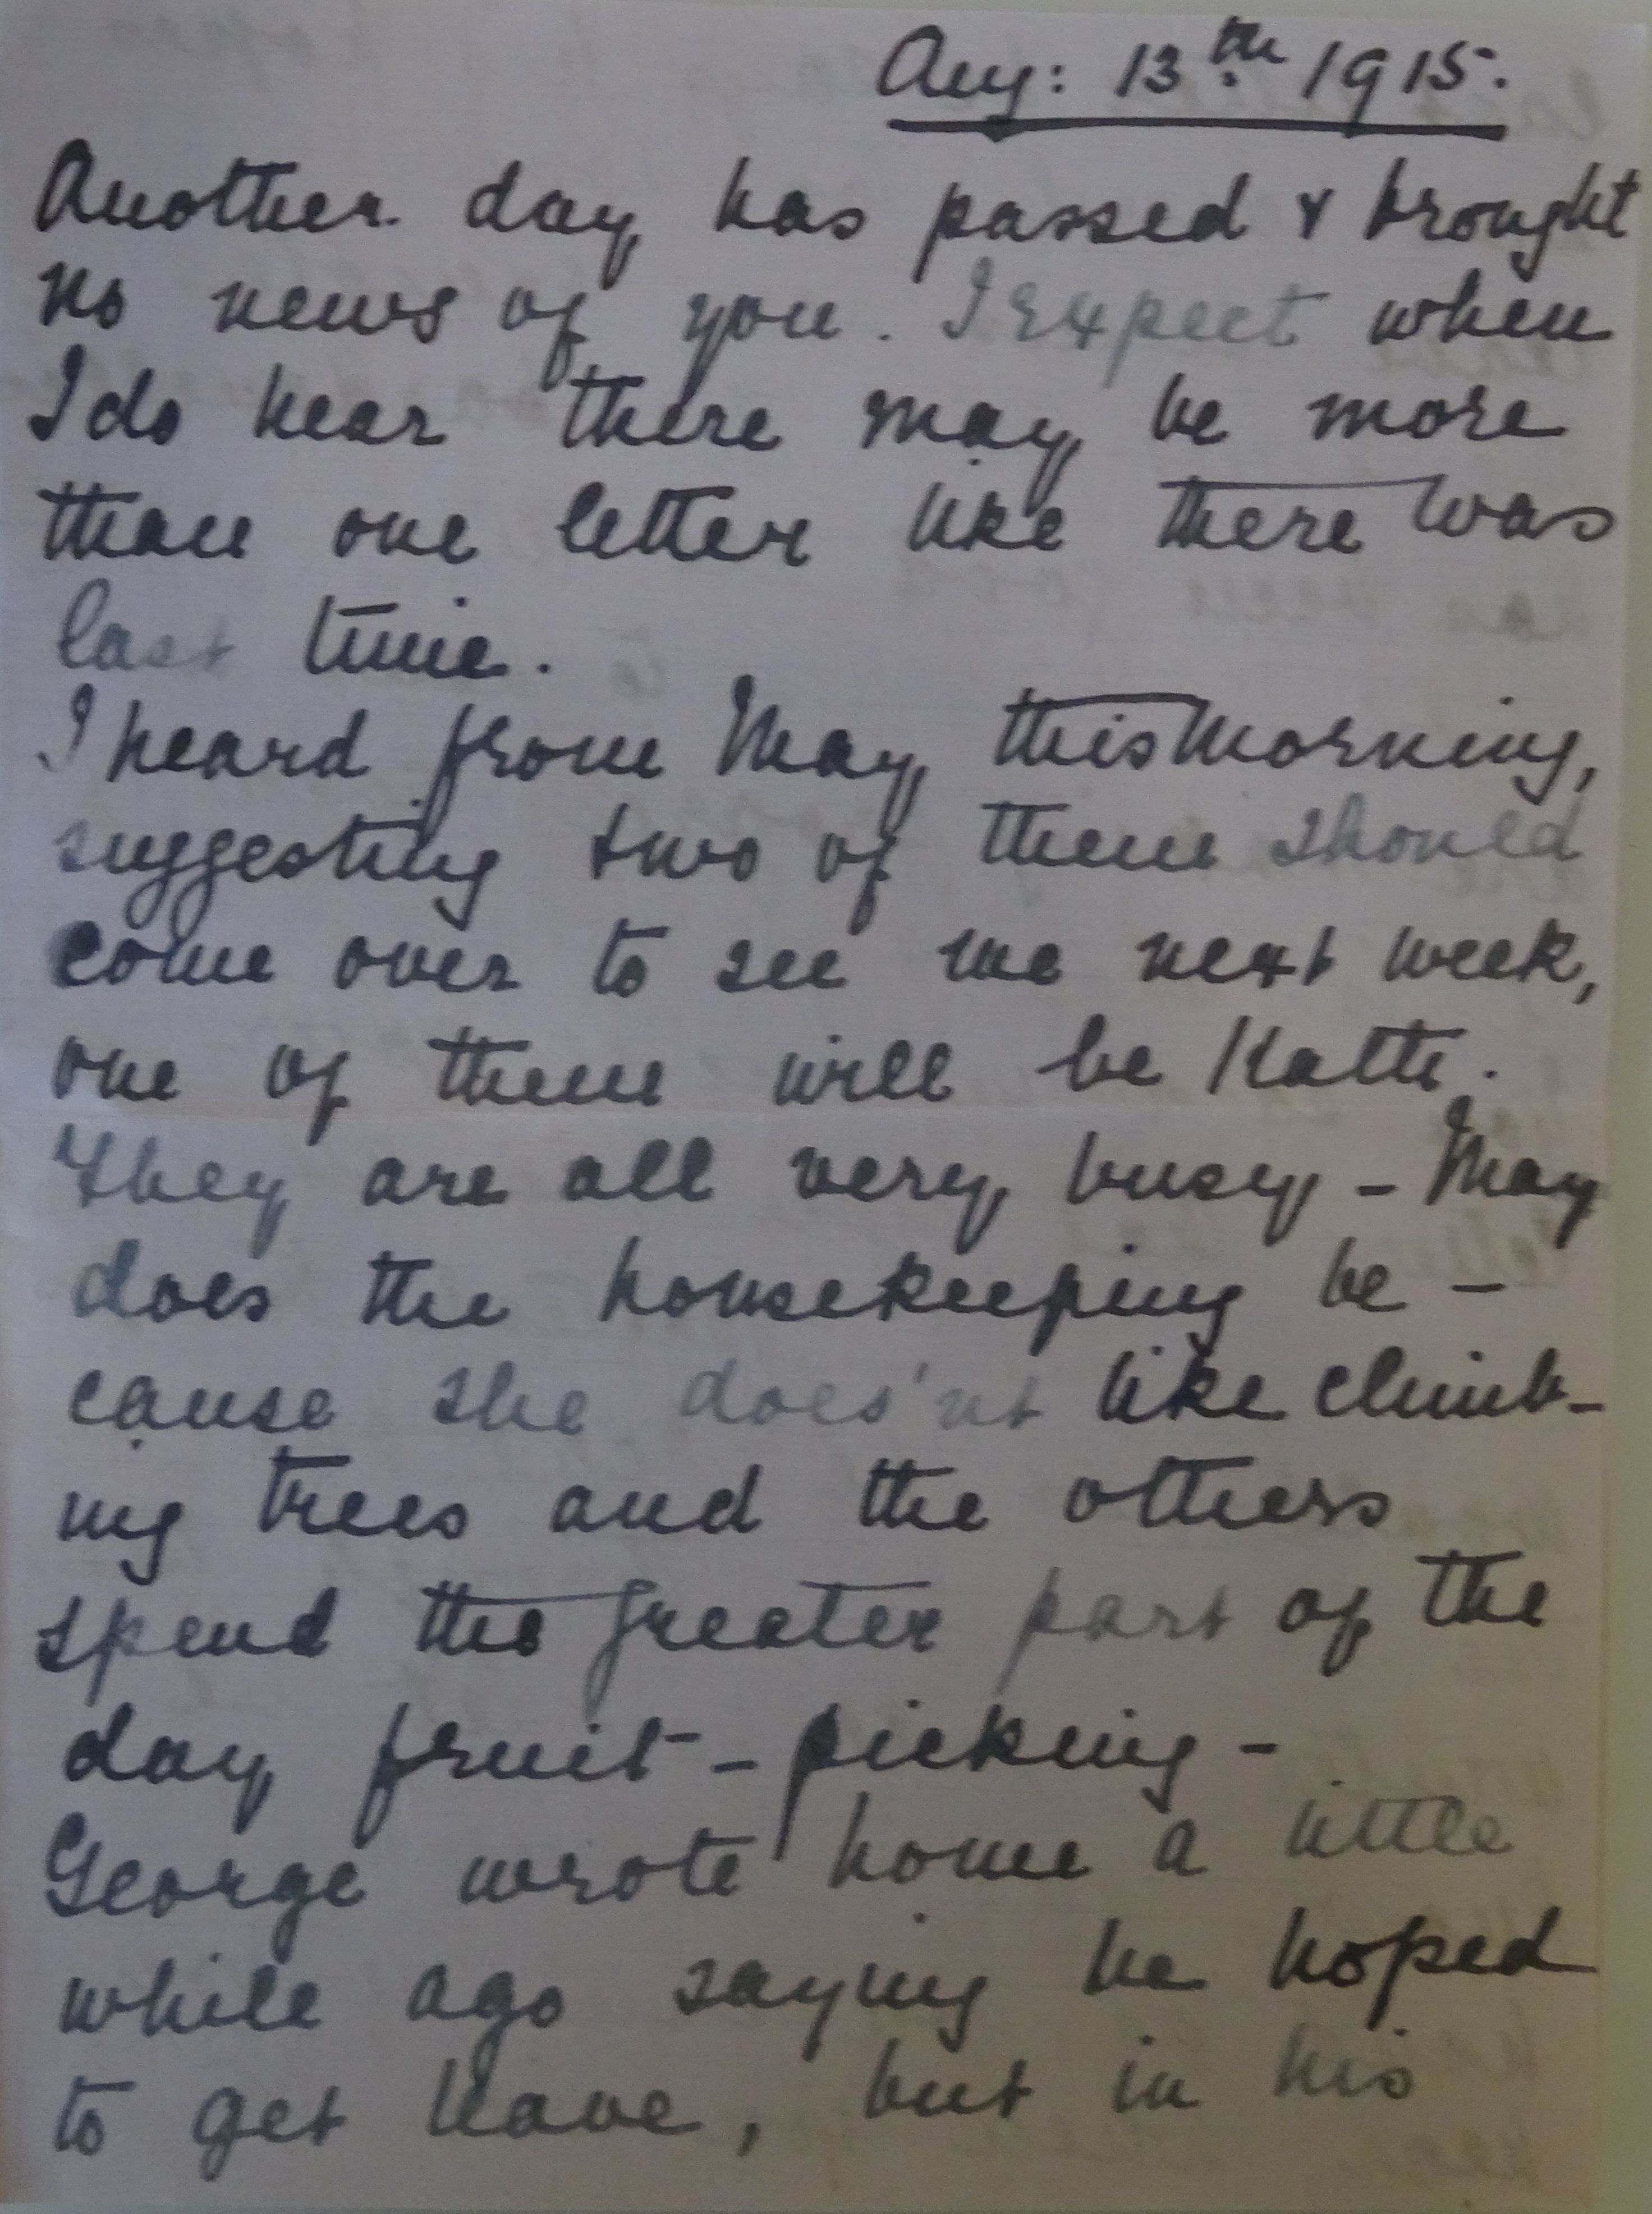 Aug: 13th 1915.
Another day has passed & brought
no news of you. I expect when
I do hear there may be more
than one letter like there was
last time.
I heard from May this morning,
suggesting two of them should
come over to see me next week,
one of them will be Kath.
They are all very busy - May
does the housekeeping be -
cause she does'nt like climb-
ing trees and the others
spend the greater part of the
day fruit - picking -
George wrote home a little
while ago saying he hoped
to get leave, but in his